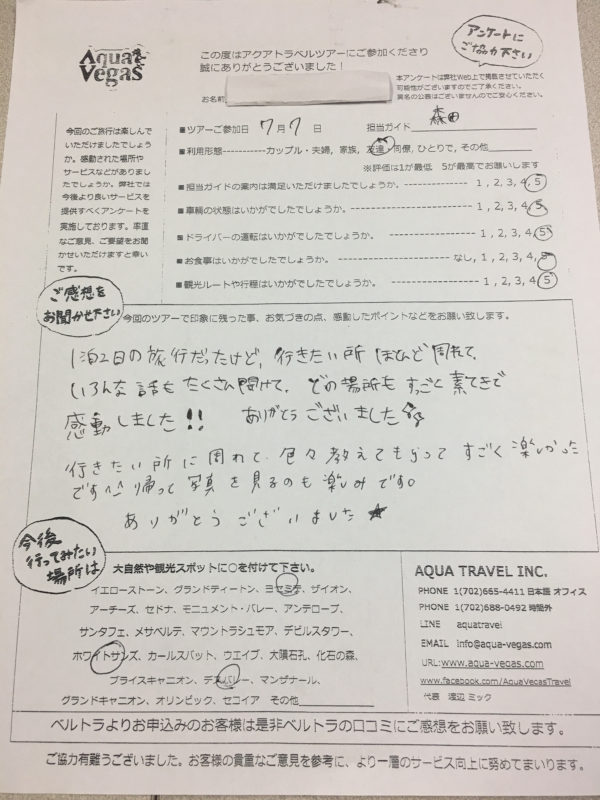 Aqua Vegas
この度はアクアトラベルツアーにご参加くださり
誠にありがとうございました！
アンケートに
ご協力下さい
本アンケートは弊社Web上で掲載させていただく
可能性がございますのでご了承ください。
実名の公表はございませんのでご安心ください。
お名前
今回のご旅行は楽しんで
いただけましたでしょう
か。感動された場所や
サービスなどがありまし
たでしょうか。弊社では
今後より良いサービスを
提供すべくアンケートを
実施しております。率直
なご意見、ご要望をお聞
かせいただけますと幸い
です。
■ツアーご参加日 7月7日 担当ガイド 森田
■利用形態------------カップル・夫婦, 家族, 友達・同僚, ひとりで, その他
※評価は1が最低 5が最高でお願いします
■担当ガイドの案内は満足いただけましたでしょうか。 1 , 2, 3, 4, 5
■車輌の状態はいかがでしたでしょうか。 1 , 2, 3, 4, 5
■ドライバーの運転はいかがでしたでしょうか。 1 , 2, 3, 4, 5
■お食事はいかがでしたでしょうか。 なし, 1, 2, 3, 4, 5
■観光ルートや行程はいかがでしたでしょうか。 1 , 2, 3, 4, 5
ご感想を
お聞かせ下さい
今回のツアーで印象に残った事、お気づきの点、感動したポイントなどをお願い致します。
1泊2日の旅行だったけど、行きたい所 ほとんど周れて、
いろんな話もたくさん聞けて、どの場所もすっごく素てきで
感動しました!! ありがとうございました
行きたい所に周れて、色々教えてもらってすごく楽しかった
です^^ 帰って写真を見るのも楽しみです。
ありがとうございました★
今後
行ってみたい
場所は
大自然や観光スポットに○を付けて下さい。
イエローストーン、グランドティートン、ヨセミテ、ザイオン、
アーチーズ、セドナ、モニュメント・バレー、アンテロープ、
サンタフェ、メサベルデ、マウントラシュモア、デビルスタワー、
ホワイトサンズ、カールスバット、ウエイブ、大隕石孔、化石の森、
ブライスキャニオン、デスバレー、マンザナール、
グランドキャニオン、オリンピック、セコイア その他
AQUA TRAVEL INC.
PHONE 1(702)665-4411 日本語 オフィス
PHONE 1(702)688-0492 時間外
LINE aquatravel
EMAIL info@aqua-vegas.com
URL:www.aqua-vegas.com
www.facebook.com/AquaVegasTravel
代表 渡辺 ミック
ベルトラよりお申込みのお客様は是非ベルトラの口コミにご感想をお願い致します。
ご協力有難うございました。お客様の貴重なご意見を参考に、より一層のサービス向上に努めてまいります。